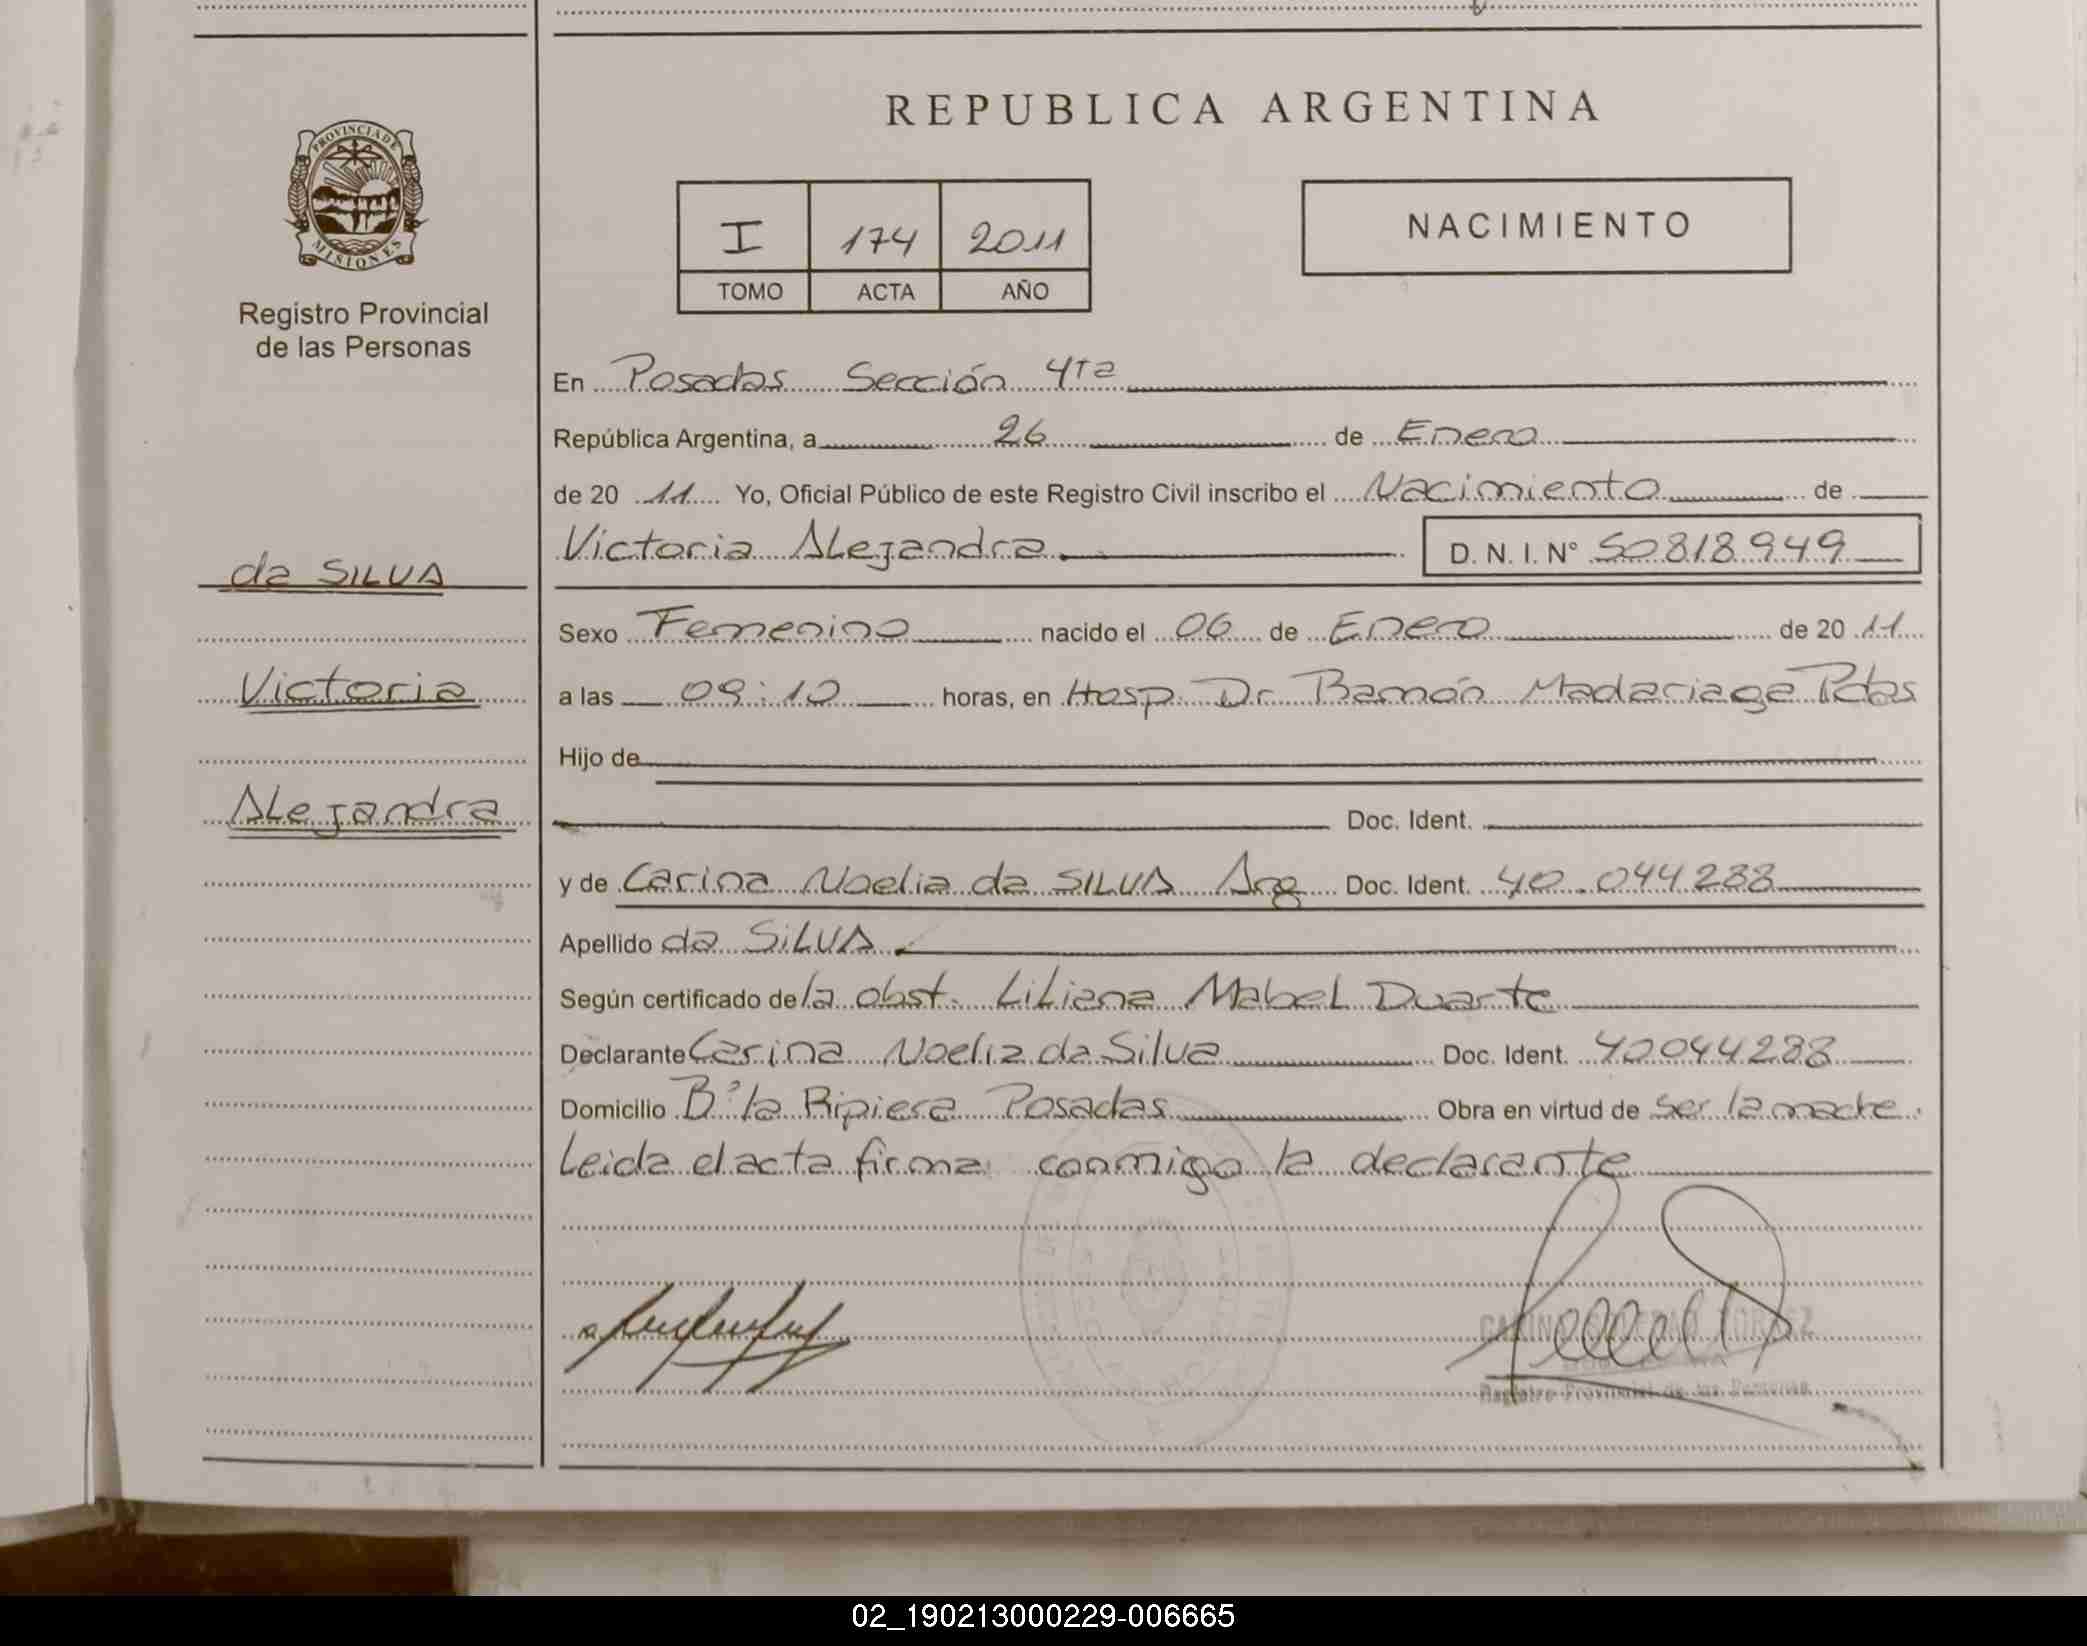 REPUBLICA ARGENTINA
PROVINCIA DE
MISIONES
Registro Provincial
de las Personas
I 174 2011
TOMO ACTA AÑO
NACIMIENTO
En Posadas Sección 4ta
República Argentina, a 26 de Enero
de 20 11 Yo, Oficial Público de este Registro Civil inscribo el Nacimiento de
Victoria Alejandra D. N. I. N° 50818949
da SILVA
Victoria
Alejandra
Sexo Femenino nacido el 06 de Enero de 20 11
a las 09:10 horas, en Hosp. Dr. Ramón Madariaga Pdas
Hijo de
Doc. Ident.
y de Carina Noelia da SILVA Arg Doc. Ident. 40.044288
Apellido da SILVA
Según certificado de la obst. Liliana Mabel Duarte
Declarante Carina Noelia da Silva Doc. Ident. 40044288
Domicilio B° la Ripiera Posadas Obra en virtud de ser la madre.
Leida el acta firma conmigo la declarante
Registro Provincial de las Personas
02_190213000229-006665